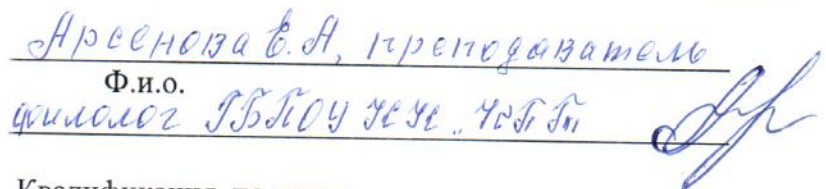 Арсенова Е.А, преподаватель
Ф.и.о.
филолог ГБПОУ КК